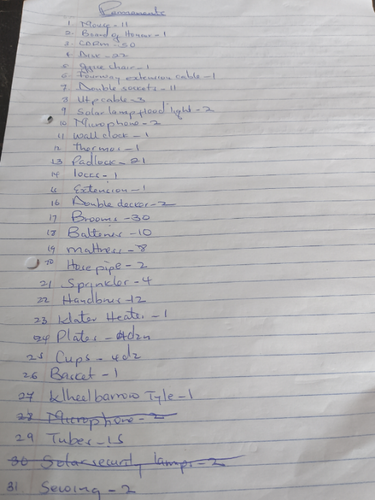 Permanents
1 Mouse - 11
2 Board of Honour - 1
3 CDRW - 50
4 Disc - 22
5 Office chair - 1
6 Fourway extension cable - 1
7 Double sockets - 11
8 Utp cable - 3
9 Solar lamp flood light - 2
10 Microphone - 2
11 Wall clock - 1
12 Thermos - 1
13 Padlock - 21
14 Locks - 1
15 Extension - 1
16 Double decker - 2
17 Brooms - 30
18 Batteries - 10
19 Mattress - 8
20 Hose pipe - 2
21 Sprinkler - 4
22 Handbrus - 12
23 Water Heater - 1
24 Plates - 4dzn
25 Cups - 4dz
26 Basket - 1
27 Wheelbarrow Tyle - 1
28 Microphone - 2
29 Tubes - 15
30 Solar security lamps - 2
31 Sewing - 2